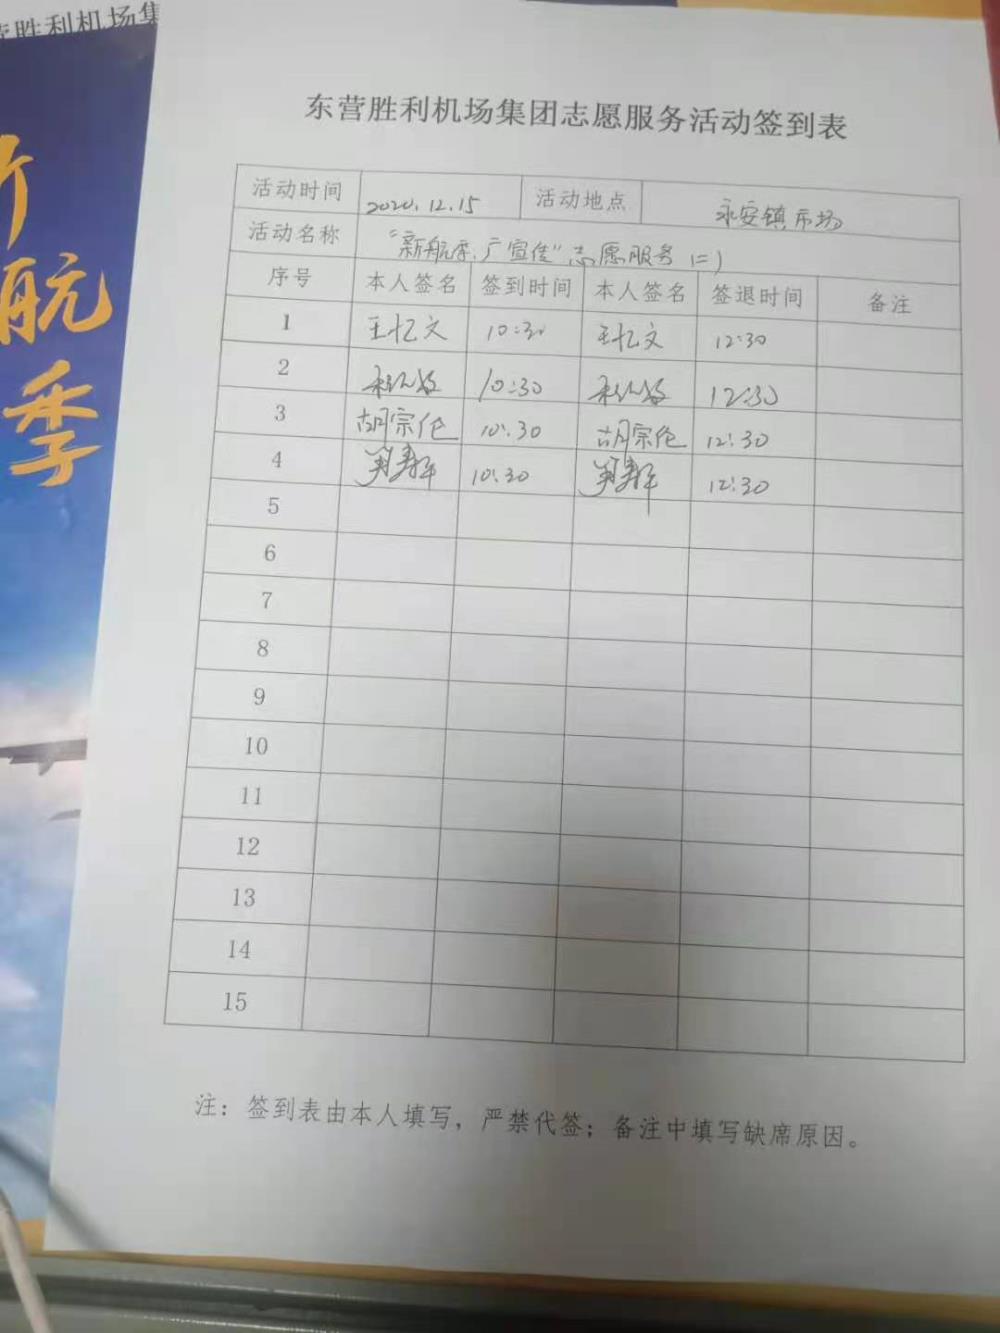 营胜利机场集
新
航
季
东营胜利机场集团志愿服务活动签到表
活动时间 2020.12.15 活动地点 永安镇市场
活动名称 “新航季、广宣传”志愿服务(二)
序号 本人签名 签到时间 本人签名 签退时间 备注
1 王忆文 10:30 王忆文 12:30
2 10:30 12:30
3 胡宗伦 10:30 胡宗伦 12:30
4 10:30 12:30
5
6
7
8
9
10
11
12
13
14
15
注：签到表由本人填写，严禁代签；备注中填写缺席原因。